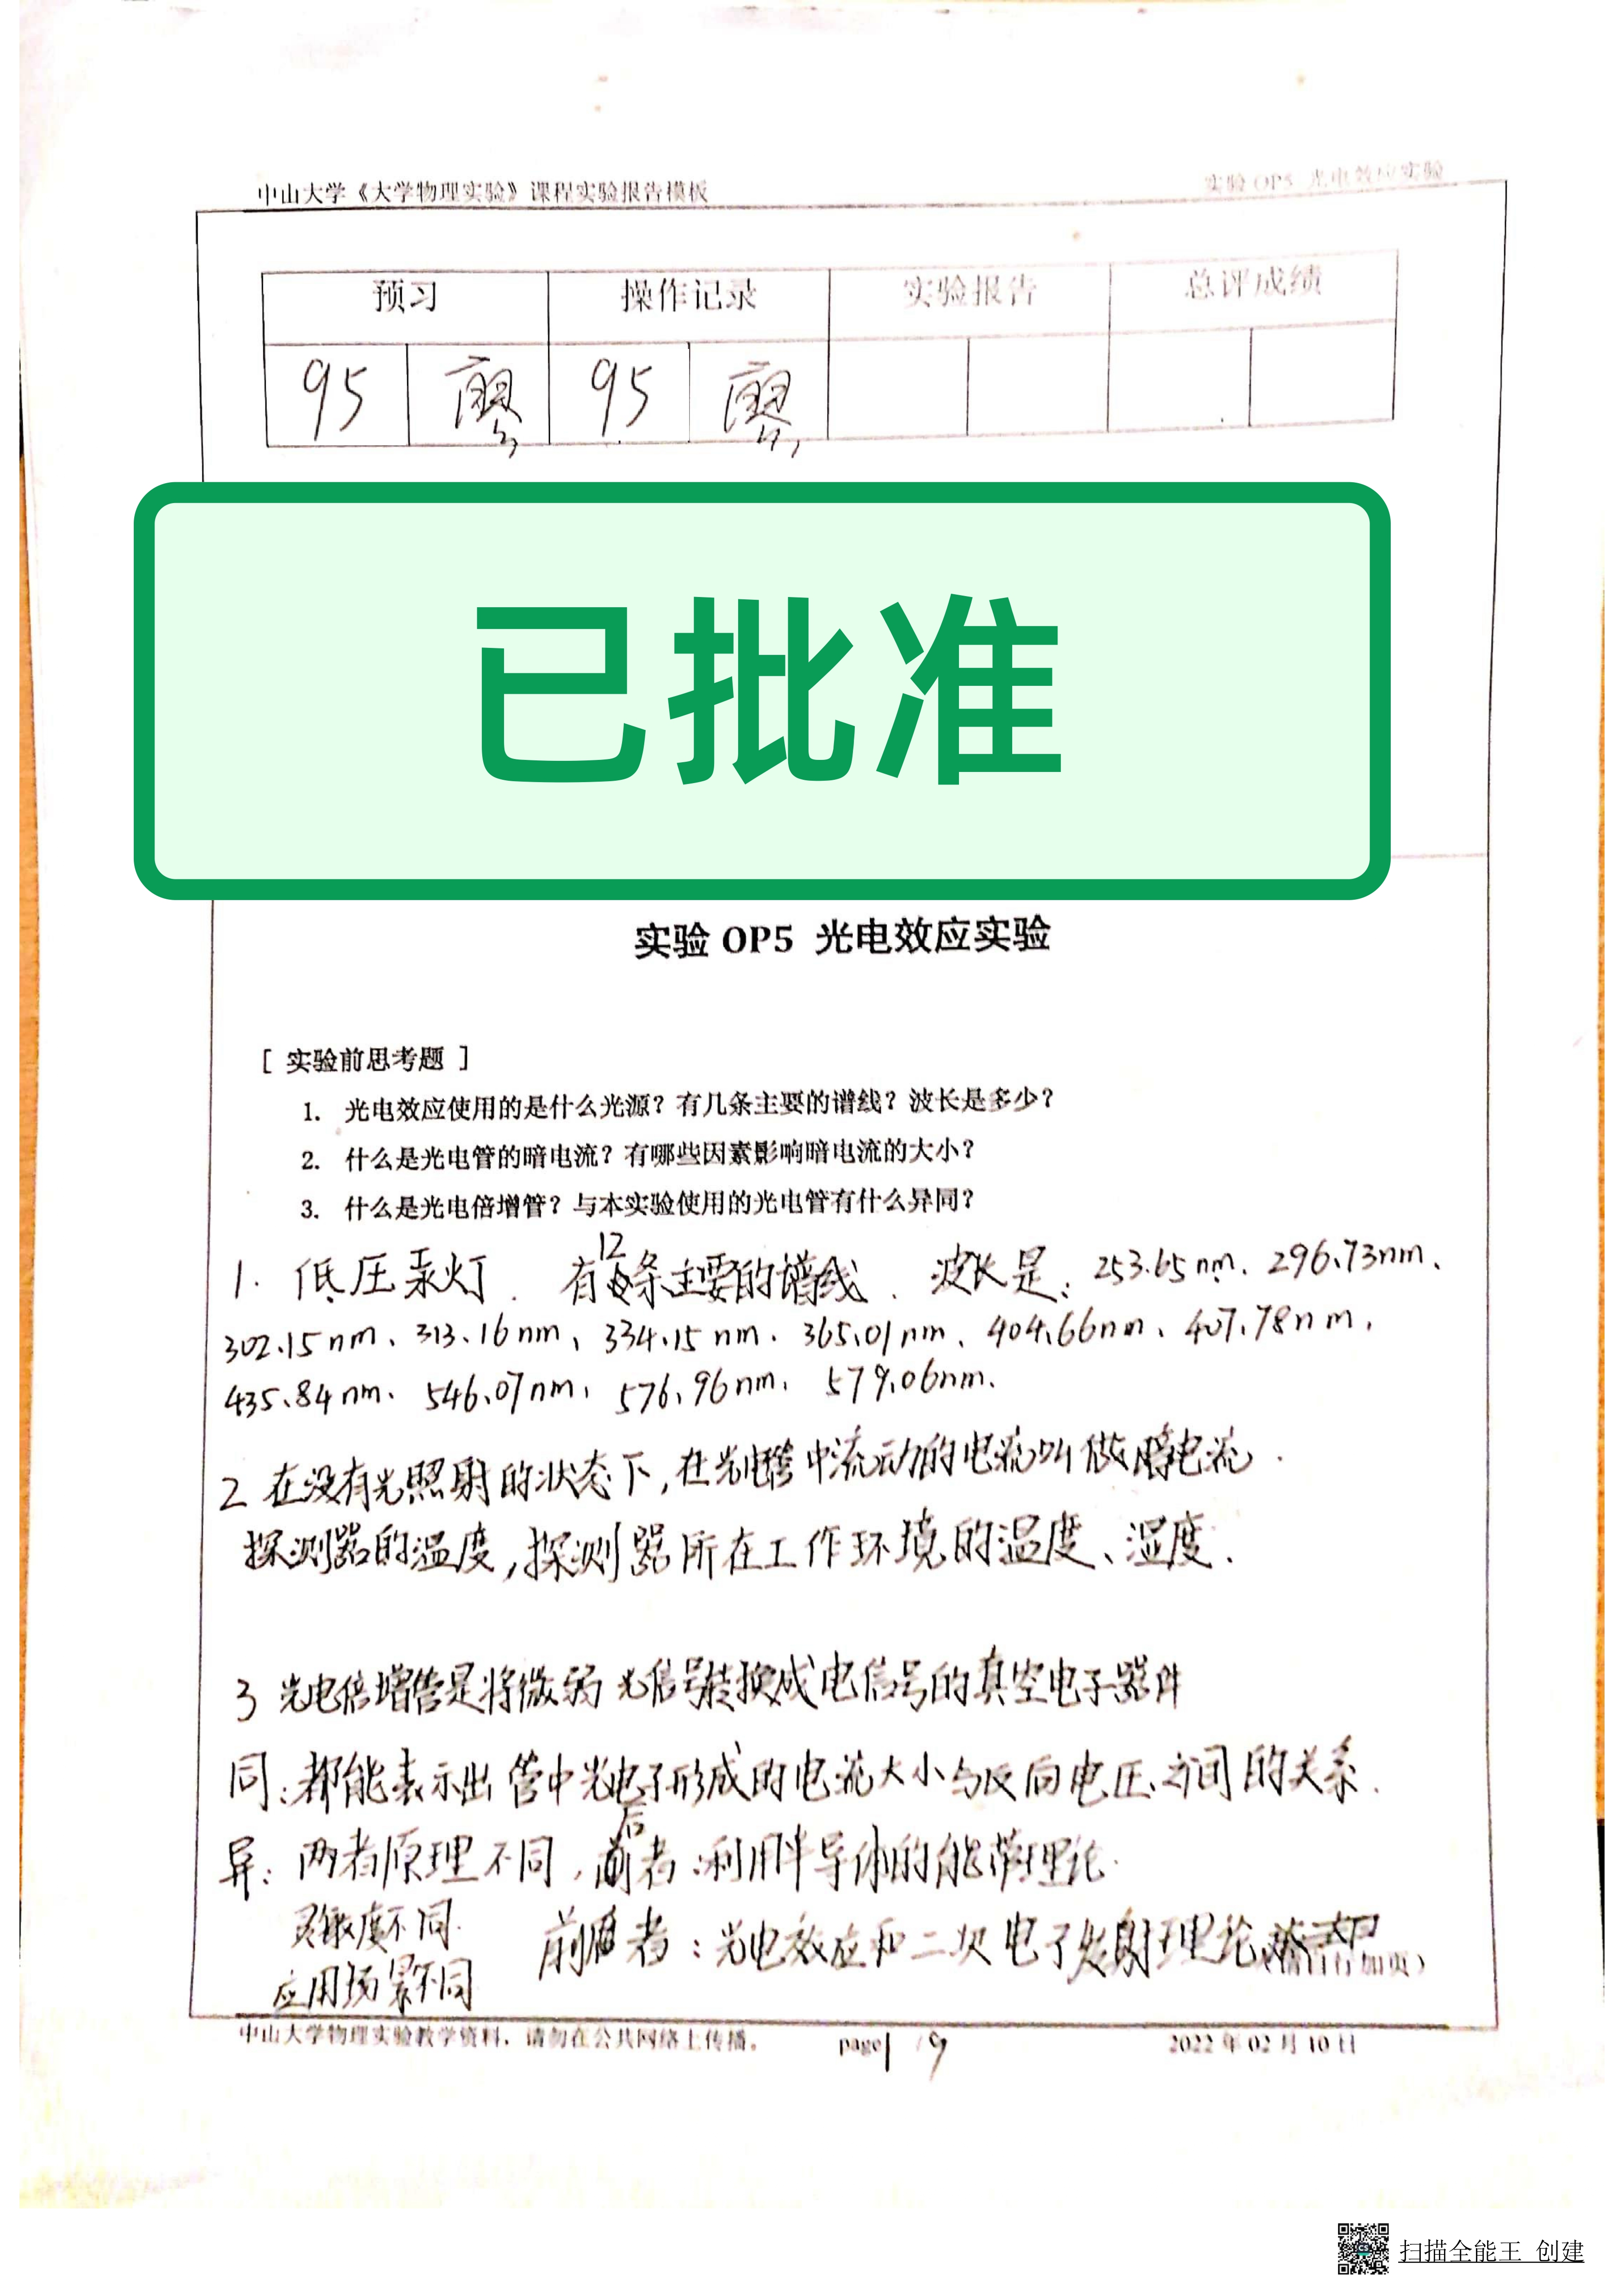 中山大学《大学物理实验》课程实验报告模板
实验 OP5 光电效应实验
预习 操作记录 实验报告 总评成绩
95 廖 95 廖
已批准
实验 OP5 光电效应实验
[ 实验前思考题 ]
1. 光电效应使用的是什么光源？有几条主要的谱线？波长是多少？
2. 什么是光电管的暗电流？有哪些因素影响暗电流的大小？
3. 什么是光电倍增管？与本实验使用的光电管有什么异同？
1. 低压汞灯. 有12条主要的谱线. 波长是: 253.65nm、296.73nm、
302.15nm、313.16nm、334.15nm、365.01nm、404.66nm、407.78nm、
435.84nm、546.07nm、576.96nm、579.06nm.
2 在没有光照射的状态下,在光电管中流动的电流叫做暗电流.
探测器的温度,探测器所在工作环境的温度、湿度.
3 光电倍增管是将微弱光信号转换成电信号的真空电子器件
同:都能表示出管中光电子形成的电流大小与反向电压之间的关系.
异: 两者原理不同, 后者:利用半导体的能带理论.
灵敏度不同. 前者: 光电效应和二次电子发射理论
应用场景不同
中山大学物理实验教学资料，请勿在公共网络上传播。 page1 /9 2022 年 02 月 10 日
扫描全能王 创建